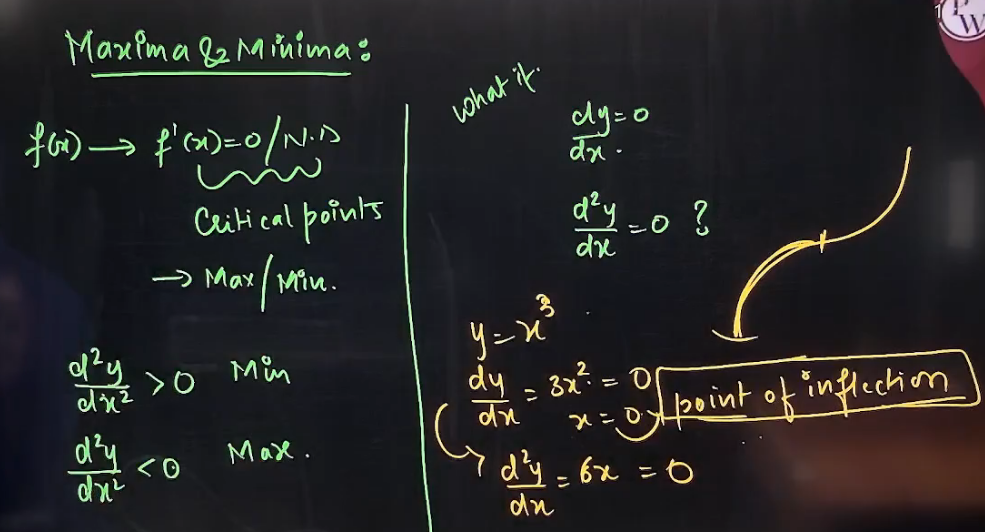 Maxima & Minima:
f(x) → f'(x)=0/N.D
Critical points
→ Max/Min.
d²y/dx² > 0 Min
d²y/dx² < 0 Max.
what if
dy/dx = 0
d²y/dx = 0 ?
y = x³
dy/dx = 3x² = 0
x = 0
point of inflection
d²y/dx = 6x = 0
PW